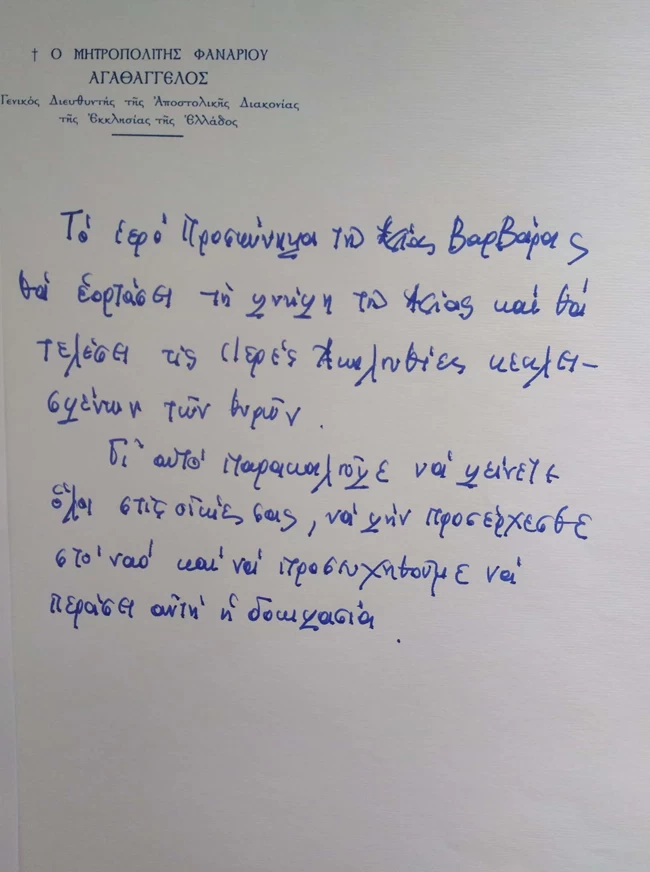 † Ο ΜΗΤΡΟΠΟΛΙΤΗΣ ΦΑΝΑΡΙΟΥ
ΑΓΑΘΑΓΓΕΛΟΣ
Γενικός Διευθυντής τῆς Ἀποστολικῆς Διακονίας
τῆς Ἐκκλησίας τῆς Ἑλλάδος
Τό ἱερό Προσκύνημα τῆς Ἁγίας Βαρβάρας
θά ἑορτάσει τή μνήμη τῆς Ἁγίας καί θά
τελέσει τίς Ἱερές Ἀκολουθίες κεκλει-
σμένων τῶν θυρῶν.
Γι' αὐτό παρακαλοῦμε νά μείνετε
ὅλοι στίς οἰκίες σας, νά μήν προσέρχεσθε
στό ναό καί νά προσευχηθοῦμε νά
περάσει αὐτή ἡ δοκιμασία.